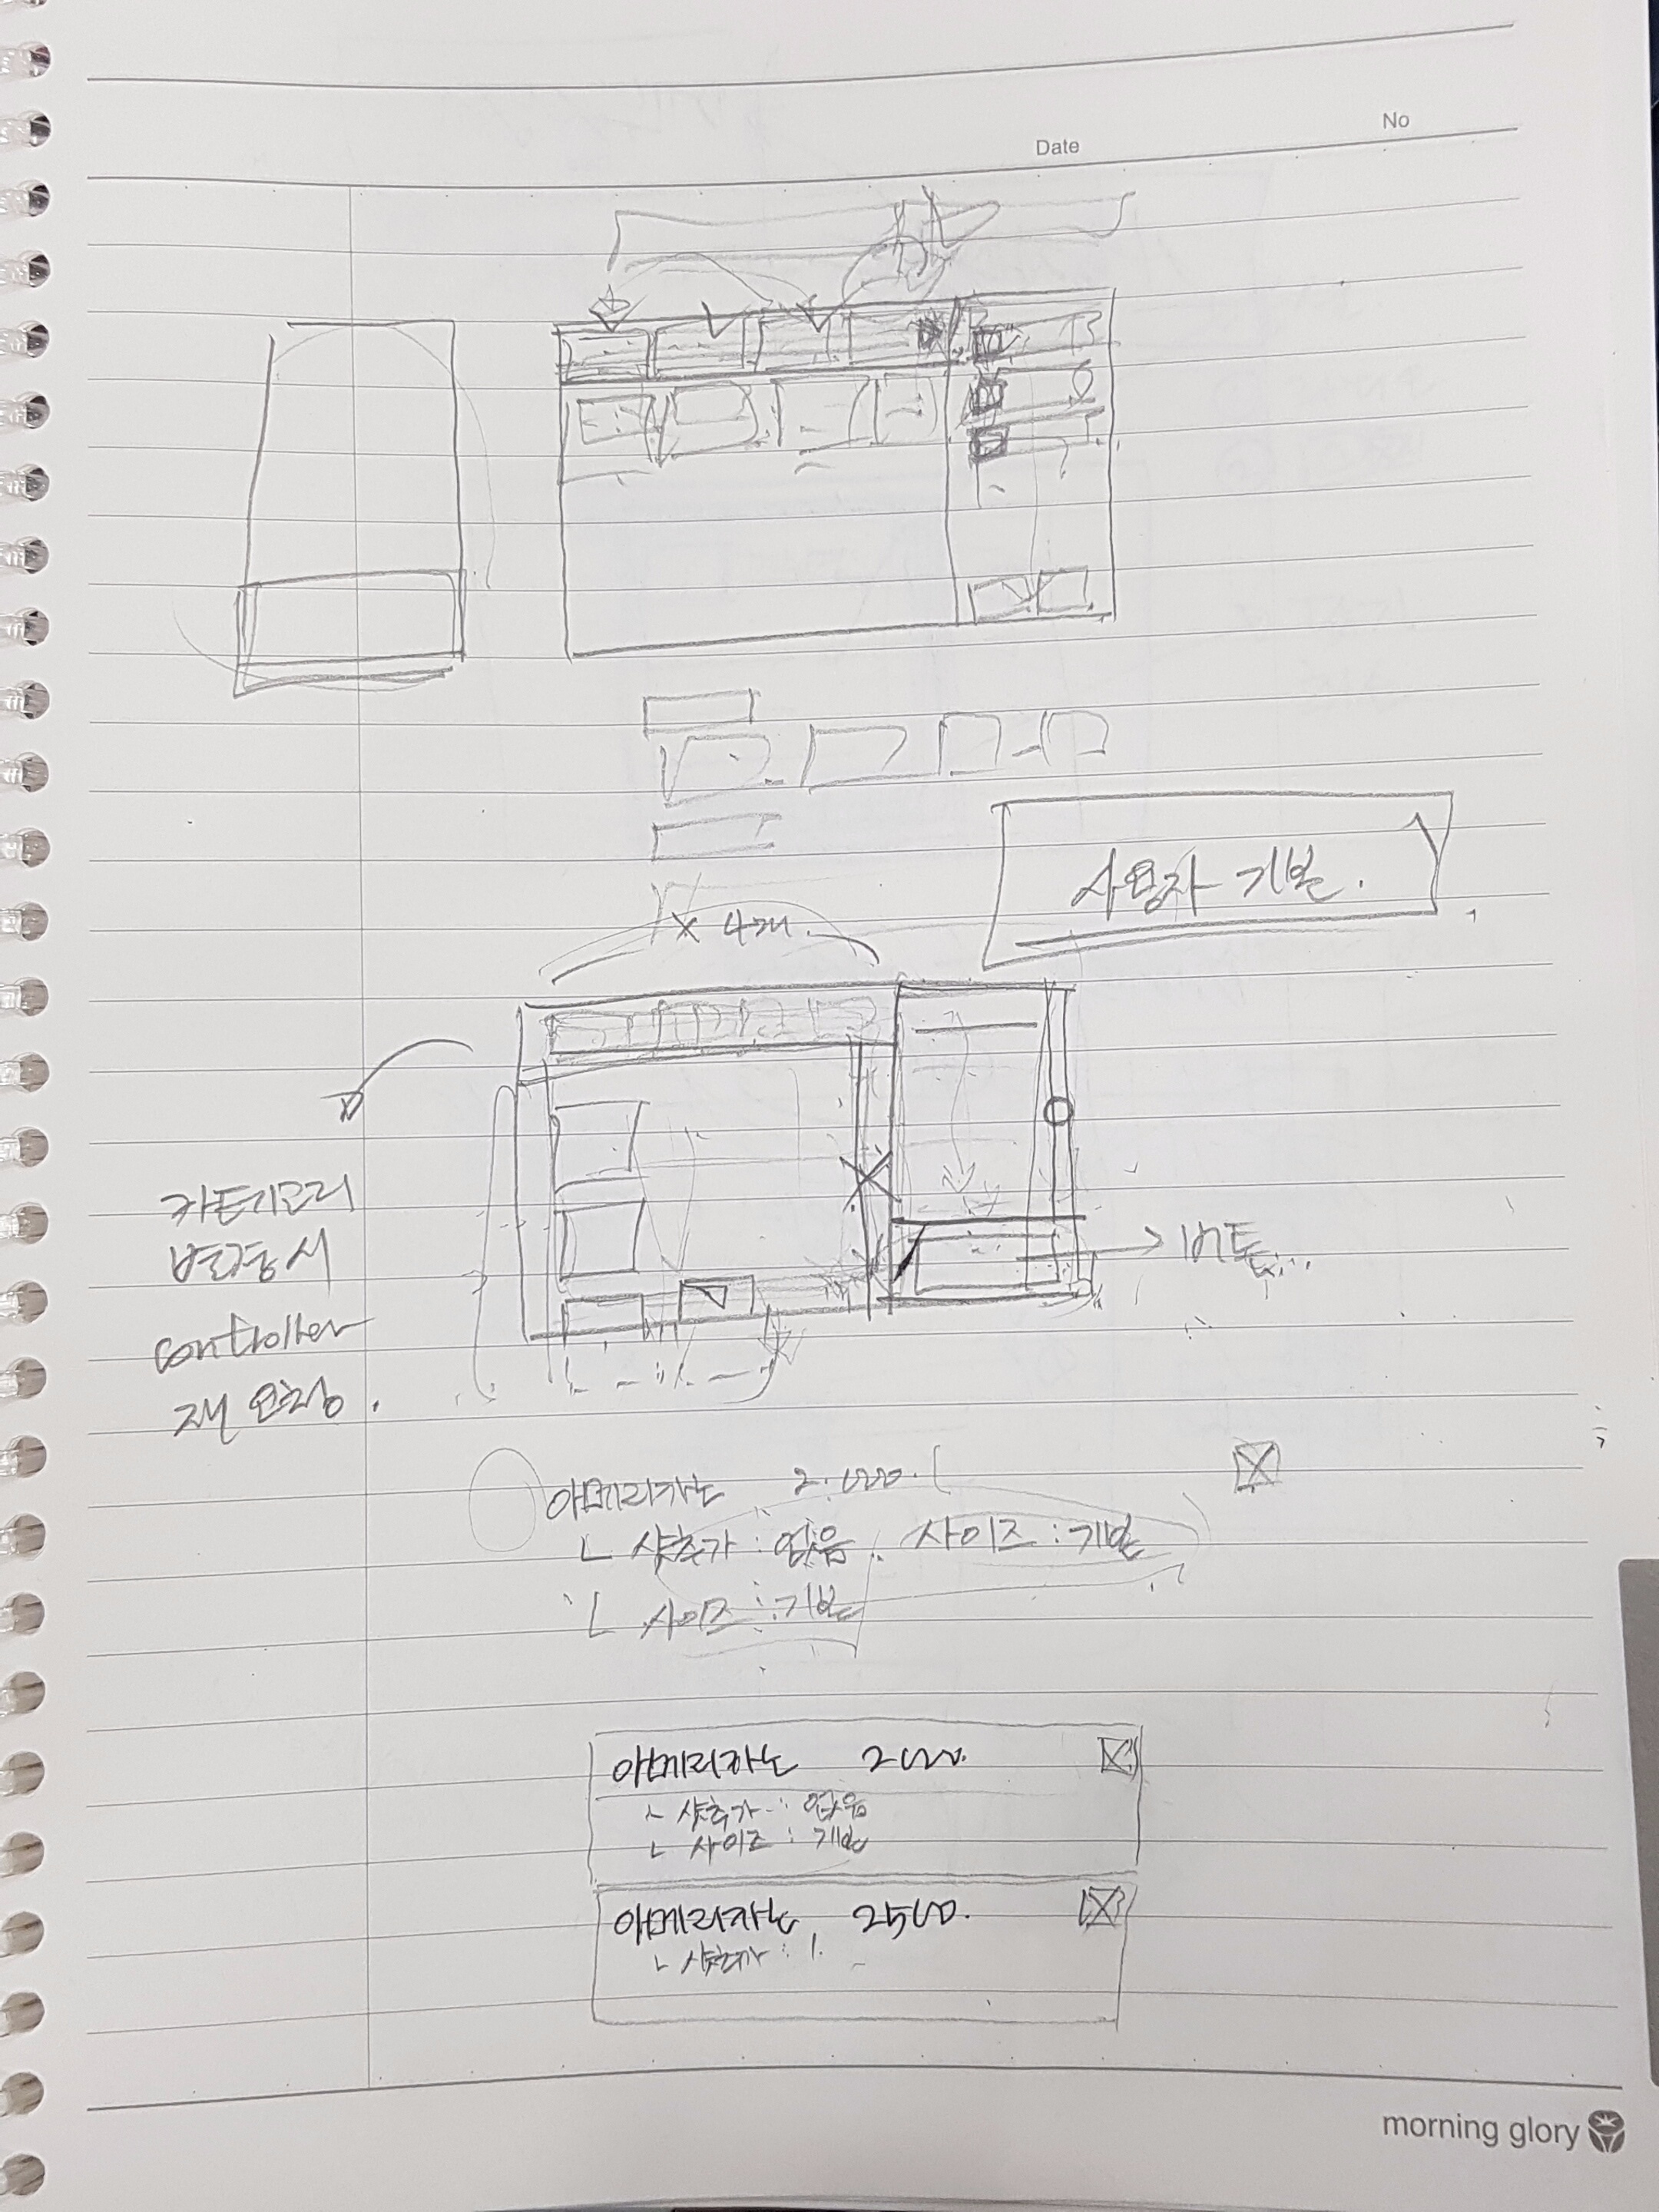 No
Date
사용자 기본.
x 4개.
카테고리
변경시
controller
재 요청.
버튼
아메리카노 2.000.
ㄴ 샷추가 : 없음. 사이즈 : 기본
ㄴ 사이즈 : 기본
아메리카노 2000.
ㄴ 샷추가 : 없음
ㄴ 사이즈 : 기본
아메리카노 2500.
ㄴ 샷추가 : 1.
morning glory